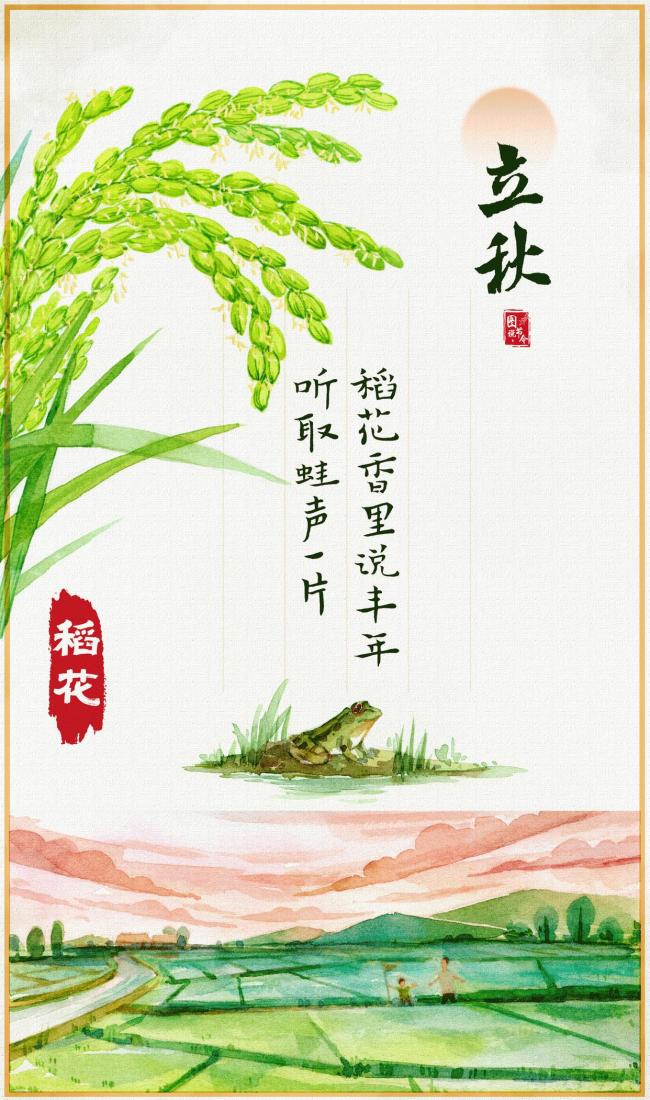 立秋
图说节令
稻花香里说丰年
听取蛙声一片
稻花